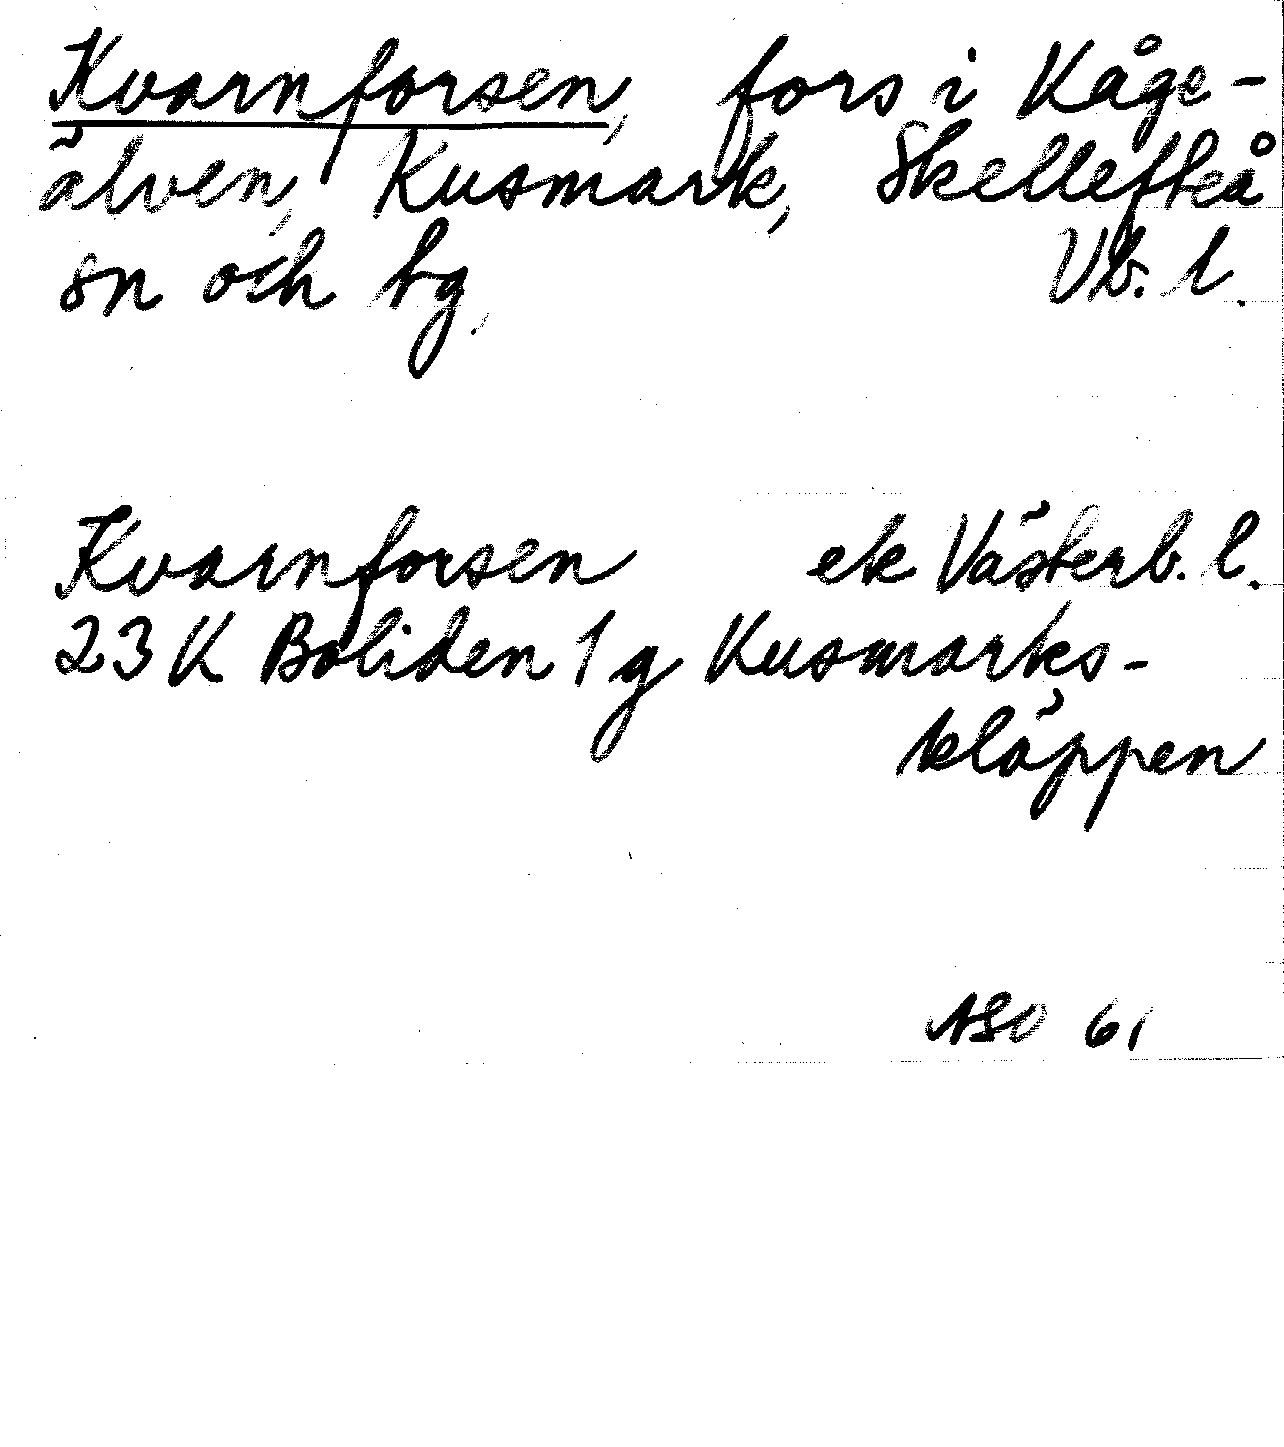 Kvarnforsen, fors i Kåge-
älven, Kusmark, Skellefteå
sn och tg, Vb. l.
Kvarnforsen ek Västerb. l.
23 K Boliden 1 g Kusmarks-
kläppen
ASO 61